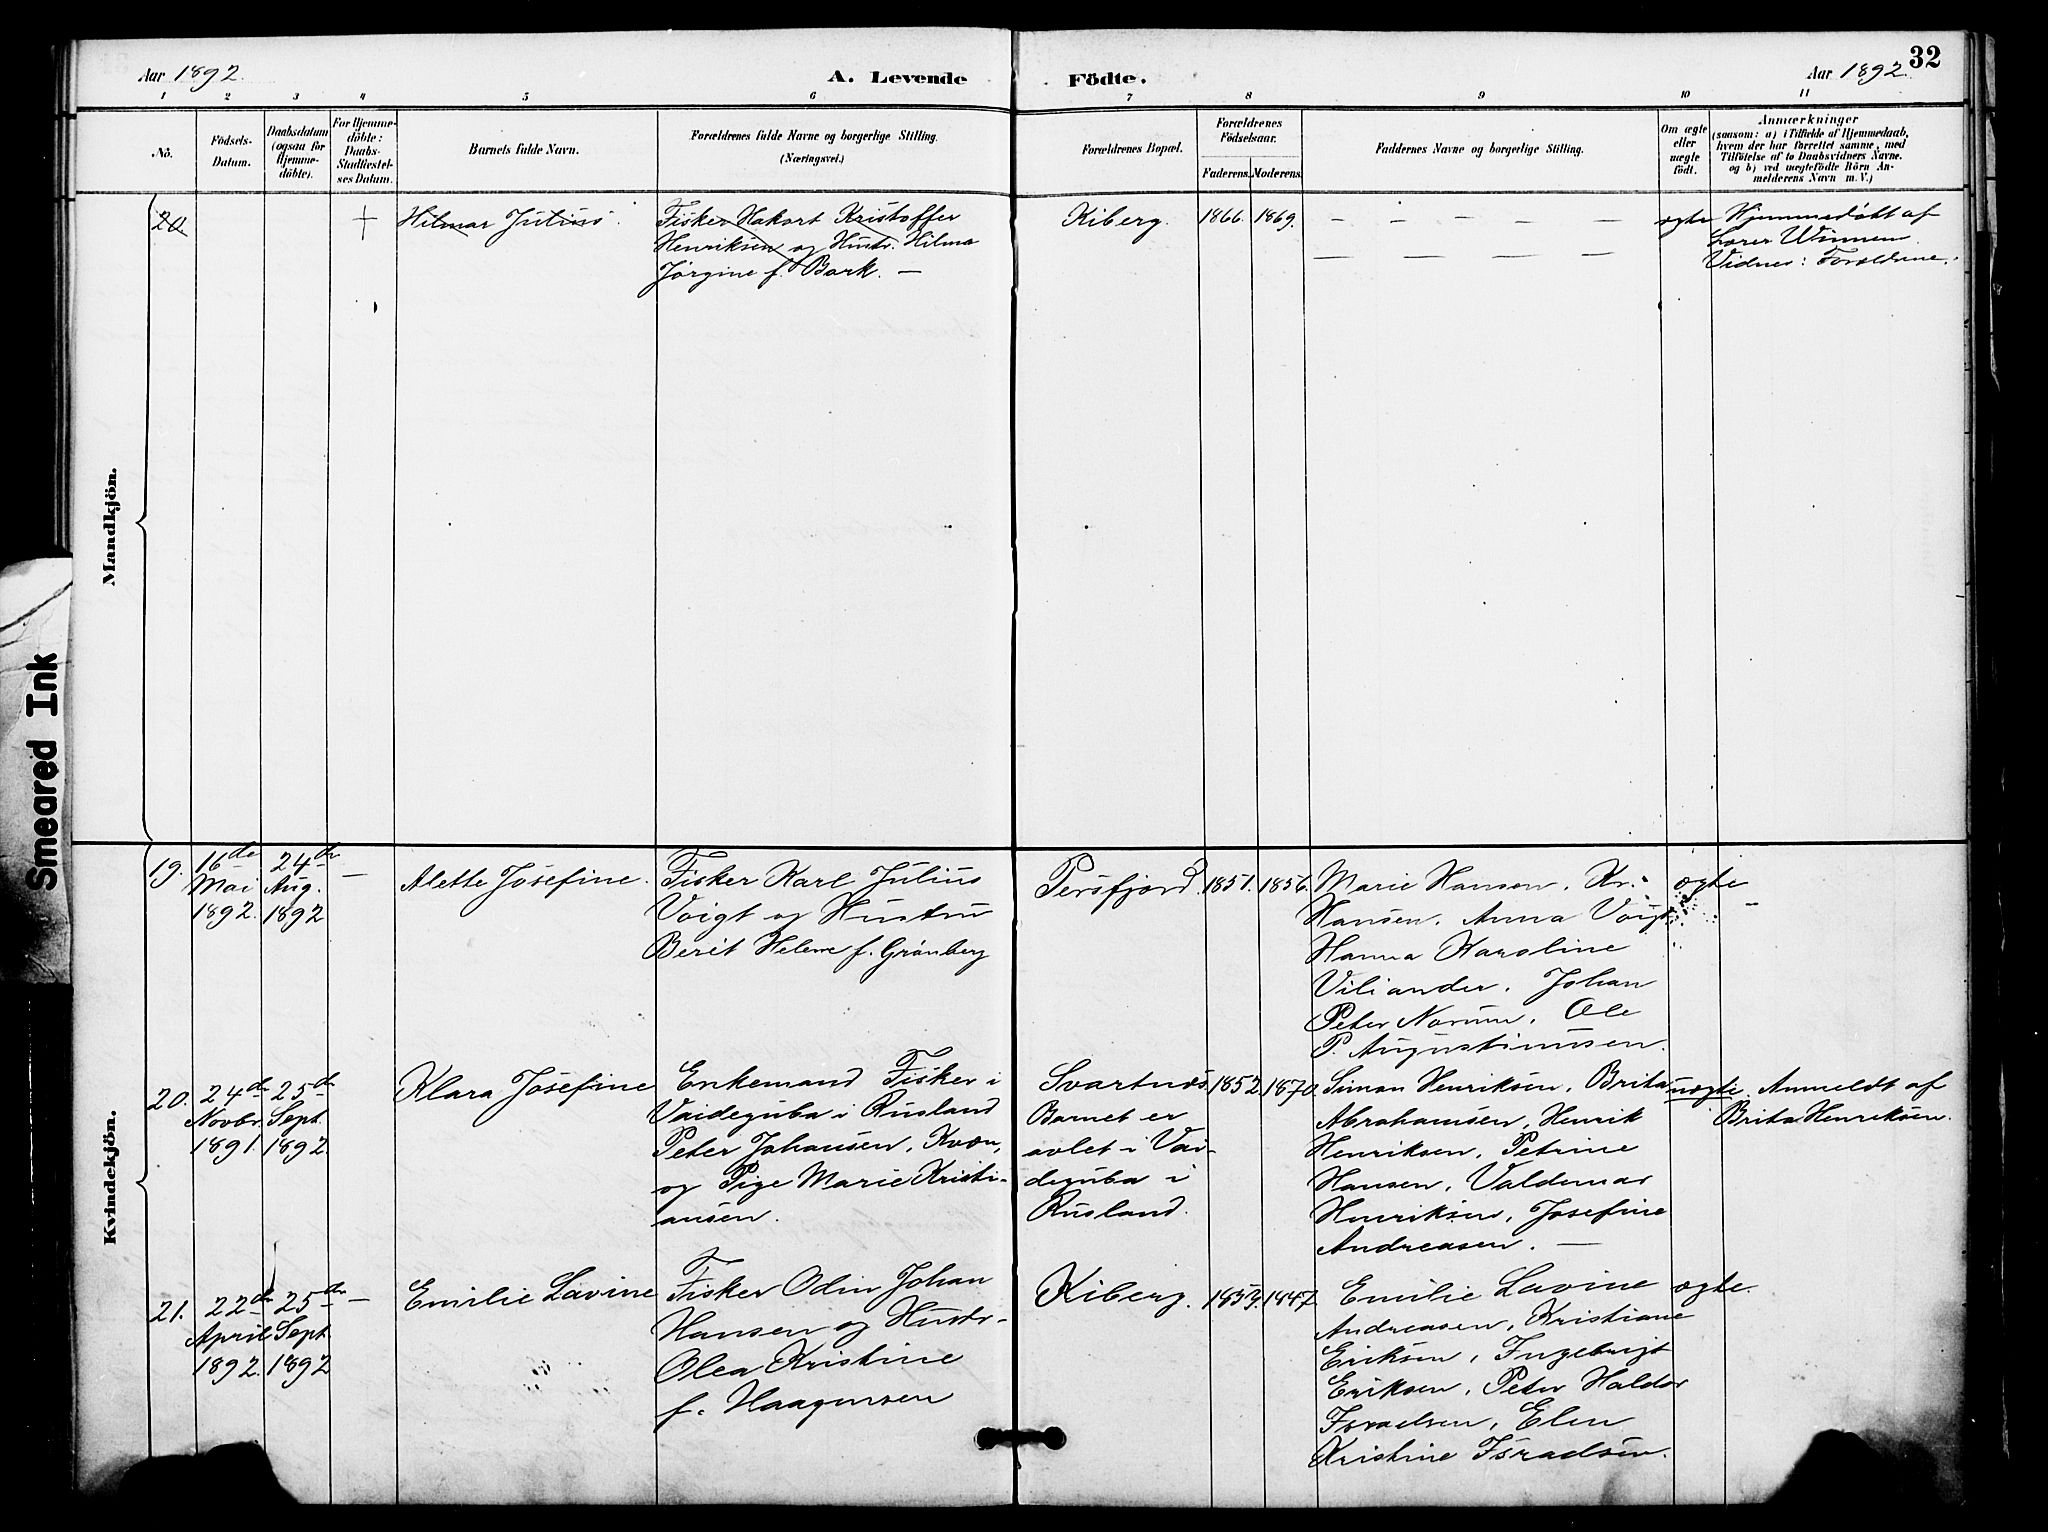 32
Aar 1892.
A. Levende
Födte.
Aar 1892.
1 2 3 4 5 6 7 8 9 10 11
No.
Födsels-
Datum.
Daabsdatum
(ogsaa for
Hjemme-
döbte).
For Hjemme-
döbte:
Daabs-
Stadfæstel-
ses Datum.
Barnets fulde Navn.
Forældrenes fulde Navne og borgerlige Stilling.
(Næringsvei.)
Forældrenes Bopæl.
Forældrenes
Födselsaar.
Faderens.
Moderens.
Faddernes Navne og borgerlige Stilling.
Om ægte
eller
uægte
födt.
Anmærkninger
(saasom: a) i Tilfælde af Hjemmedaab,
hvem der har forrettet samme, med
Tilföielse af to Daabsvidners Navne.
og b) ved uægtefödte Börn An-
melderens Navn m. V.)
Mandkjön.
20.
†
Hilmar Julius.
Fisker Hakart Kristoffer
Henriksen og Hustr. Hilma
Jørgine f. Bark. —
Kiberg.
1866.
1869.
— — — — —
— — — —
ægte
Hjemmedøbt af
Lærer Winnem.
Vidner: Forældrene.
Smeared Ink
Kvindekjön.
19.
16de
Mai
1892.
24de
Aug.
1892
—
Alette Josefine.
Fisker Karl Julius
Voigt og Hustru
Berit Helene f. Grønberg
Persfjord.
1851.
1856.
Marie Hansen, Kr.
Hansen, Anna Voigt,
Hanna Karoline
Viliander, Johan
Peter Norum, Ole
P. Augustinusen.
ægte
—
20.
24de
Novbr.
1891.
25de
Sept.
1892.
Klara Josefine
Enkemand Fisker i
Vaideguba i Rusland
Peter Johansen, Kvæn,
og Pige Marie Kristi-
ansen.
Svartnæs.
Barnet er
avlet i Vai-
deguba i
Rusland.
1852.
1870.
Simon Henriksen, Brita
Abrahamsen, Henrik
Henriksen, Petrine
Hansen, Valdemar
Henriksen, Josefine
Andreasen. —
uægte.
Anmeldt af
Brita Henriksen.
21.
22de
April
1892.
25de
Sept.
1892
—
Emilie Lavine
Fisker Odin Johan
Hansen og Hustr.
Olea Kristine
f. Haagensen
Kiberg.
1847
Emilie Lavine
Andreasen, Kristiane
Eriksen, Ingebrigt
Eriksen, Peter Haldor
Israelsen, Elen
Kristine Israelsen.
ægte.